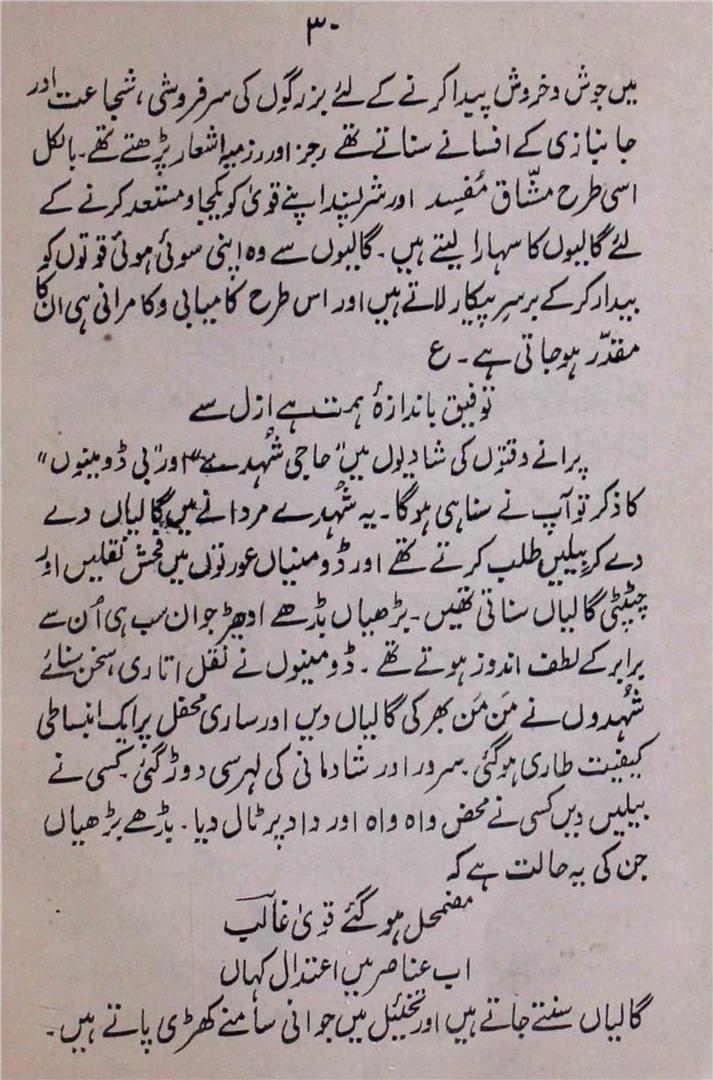 ۳۰
میں جوش و خروش پیدا کرنے کے لئے بزرگوں کی سرفروشی، شجاعت اور
جانبازی کے افسانے سناتے تھے رجز اور رزمیہ اشعار پڑھتے تھے۔ بالکل
اسی طرح مشّاق مُفسِد اور شرپسند اپنے قویٰ کو یکجا و مستعد کرنے کے
لئے گالیوں کا سہارا لیتے ہیں۔ گالیوں سے وہ اپنی سوئی ہوئی قوتوں کو
بیدار کر کے برسرِ پیکار لاتے ہیں اور اس طرح کامیابی و کامرانی ہی ان کا
مقدّر ہو جاتی ہے۔ ع
توفیق باندازۂ ہمت ہے ازل سے
پرانے وقتوں کی شادیوں میں "حاجی شُہدے" اور "بی ڈومینوں"
کا ذکر تو آپ نے سنا ہی ہوگا۔ یہ شُہدے مردانے میں گالیاں دے
دے کر بیلیں طلب کرتے تھے اور ڈومنیاں عورتوں میں فحش نقلیں اور
چٹپٹی گالیاں سناتی تھیں۔ بڑھیاں بڈھے ادھیڑ جوان سب ہی اُن سے
برابر کے لطف اندوز ہوتے تھے۔ ڈومینوں نے نقل اتاری، سخن بنائے
شُہدوں نے مَن مَن بھر کی گالیاں دیں اور ساری محفل پر ایک انبساطی
کیفیت طاری ہو گئی سرور اور شادمانی کی لہر سی دوڑ گئی کسی نے
بیلیں دیں کسی نے محض واہ واہ اور داد پر ٹال دیا۔ بڈھے بڑھیاں
جن کی یہ حالت ہے کہ
مضمحل ہو گئے قویٰ غالب
اب عناصر میں اعتدال کہاں
گالیاں سنتے جاتے ہیں اور تخئیل میں جوانی سامنے کھڑی پاتے ہیں۔